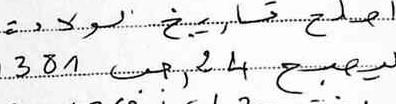 اصلح تاريخ الولادة
ليصبح 24 رجب 1381